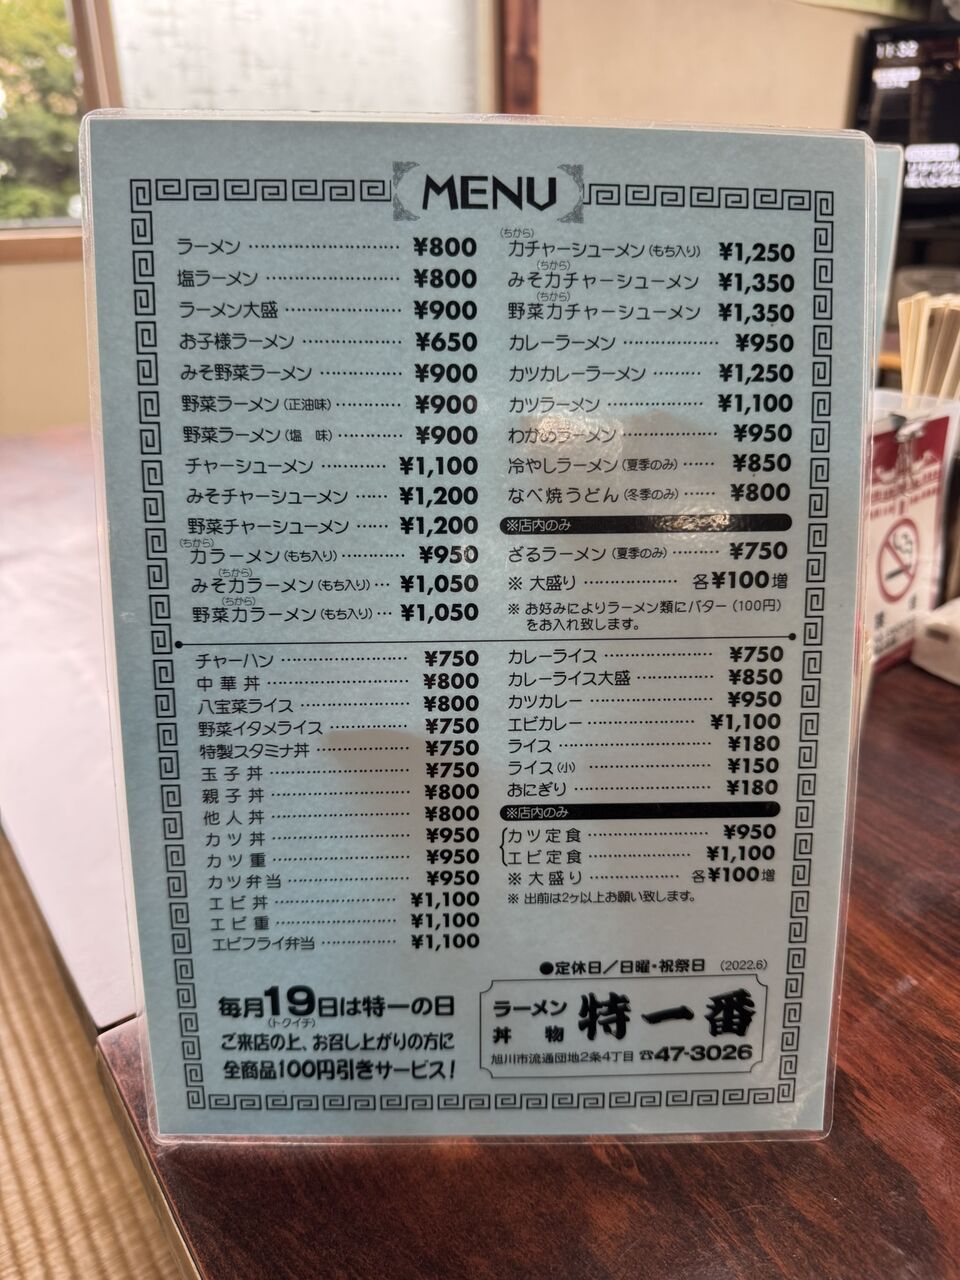 MENU
ラーメン ¥800
塩ラーメン ¥800
ラーメン大盛 ¥900
お子様ラーメン ¥650
みそ野菜ラーメン ¥900
野菜ラーメン(正油味) ¥900
野菜ラーメン(塩 味) ¥900
チャーシューメン ¥1,100
みそチャーシューメン ¥1,200
野菜チャーシューメン ¥1,200
(ちから)
力ラーメン(もち入り) ¥950
(ちから)
みそ力ラーメン(もち入り) ¥1,050
(ちから)
野菜力ラーメン(もち入り) ¥1,050
(ちから)
力チャーシューメン(もち入り) ¥1,250
(ちから)
みそ力チャーシューメン ¥1,350
(ちから)
野菜力チャーシューメン ¥1,350
カレーラーメン ¥950
カツカレーラーメン ¥1,250
カツラーメン ¥1,100
わかめラーメン ¥950
冷やしラーメン(夏季のみ) ¥850
なべ焼うどん(冬季のみ) ¥800
※店内のみ
ざるラーメン(夏季のみ) ¥750
※ 大盛り 各¥100増
※ お好みによりラーメン類にバター(100円)
をお入れ致します。
チャーハン ¥750
中華丼 ¥800
八宝菜ライス ¥800
野菜イタメライス ¥750
特製スタミナ丼 ¥750
玉子丼 ¥750
親子丼 ¥800
他人丼 ¥800
カツ丼 ¥950
カツ重 ¥950
カツ弁当 ¥950
エビ丼 ¥1,100
エビ重 ¥1,100
エビフライ弁当 ¥1,100
カレーライス ¥750
カレーライス大盛 ¥850
カツカレー ¥950
エビカレー ¥1,100
ライス ¥180
ライス(小) ¥150
おにぎり ¥180
※店内のみ
カツ定食 ¥950
エビ定食 ¥1,100
※ 大盛り 各¥100増
※ 出前は2ヶ以上お願い致します。
●定休日/日曜・祝祭日 (2022.6)
毎月19日は特一の日
(トクイチ)
ご来店の上、お召し上がりの方に
全商品100円引きサービス!
ラーメン
丼 物
特一番
旭川市流通団地2条4丁目 ☎47-3026
11:32